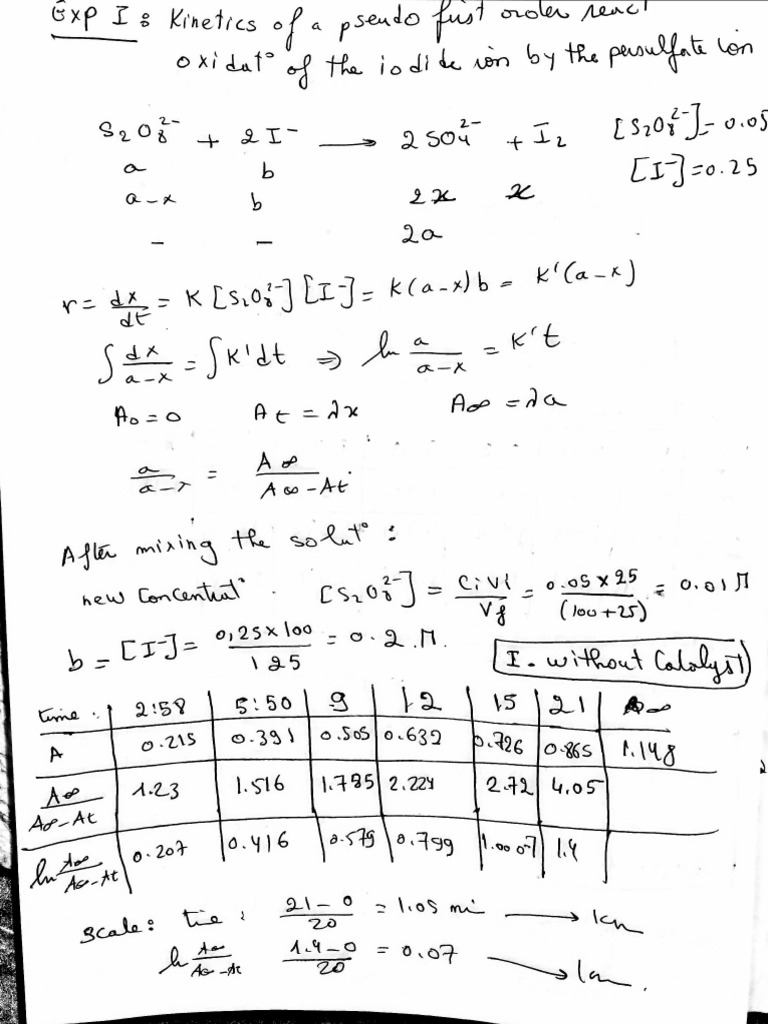 Exp I : Kinetics of a pseudo first order react
oxidat° of the iodide ion by the persulfate ion
S₂O₈²⁻ + 2I⁻ ⟶ 2SO₄²⁻ + I₂ [S₂O₈²⁻]= 0.05
a b [I⁻]=0.25
a-x b 2x x
– – 2a
r = dx/dt = K[S₂O₈²⁻][I⁻] = K(a-x)b = K'(a-x)
∫ dx/a-x = ∫K'dt ⇒ ln a/a-x = K't
A₀ = 0 At = λx A∞ = λa
a/a-x = A∞/A∞-At
After mixing the solut° :
new Concentrat° . [S₂O₈²⁻] = CiVi/Vf = 0.05×25/(100+25) = 0.01M
b = [I⁻] = 0,25×100/125 = 0.2.M. I. without Catalyst
time : 2:58 5:50 9 12 15 21 ∞
A 0.215 0.391 0.505 0.632 0.726 0.865 1.148
A∞/A∞-At 1.23 1.516 1.785 2.224 2.72 4.05
ln A∞/A∞-At 0.207 0.416 0.579 0.799 1.0007 1.4
scale: tie : 21-0/20 = 1.05 mi ⟶ 1cm
ln A∞/A∞-At 1.4-0/20 = 0.07 ⟶ 1cm.